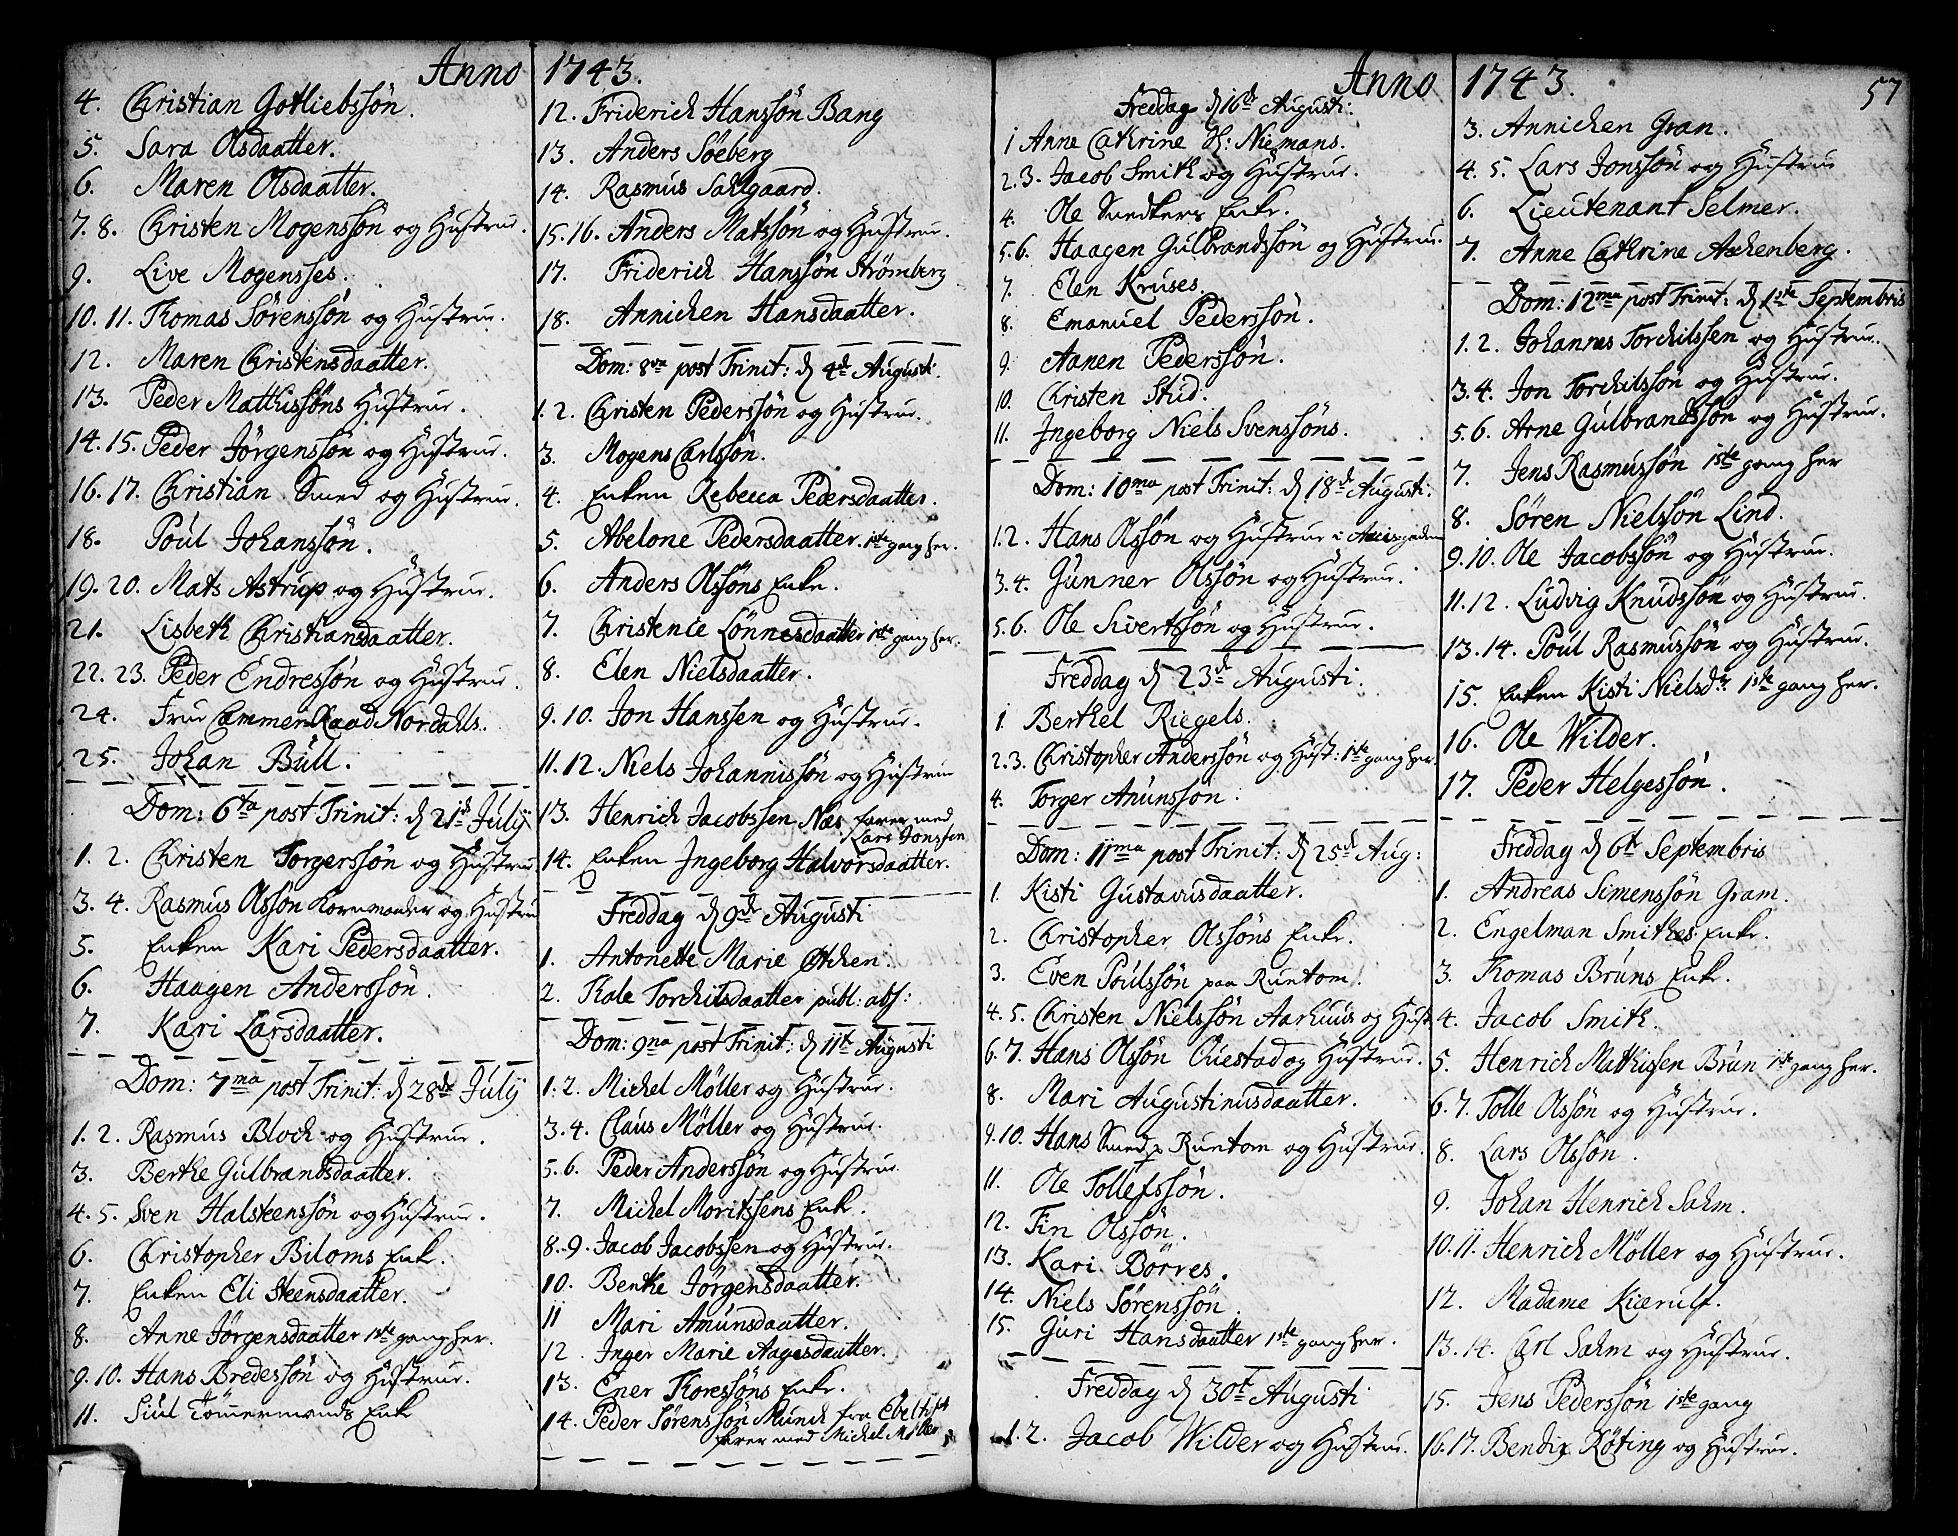 Anno 1743.
4. Christian Gotliebssön.
5. Sara Olsdaatter.
6. Maren Olsdaatter.
7. 8. Christen Mogenssön og Hustrue.
9. Live Mogensses.
10. 11. Thomas Sörenssön og Hustrue.
12. Maren Christensdaatter.
13. Peder Matthissöns Hustrue.
14. 15. Peder Jörgenssön og Hustrue.
16. 17. Christian Smed og Hustrue.
18. Poul Johanssön.
19. 20. Mats Astrup og Hustrue.
21. Lisbeth Christiansdaatter.
22. 23. Peder Endressön og Hustrue.
24. Frue CammerRaad Nordahls.
25. Johan Bull.
Dom: 6ta post Trinit: d 21de Julij
1. 2. Christen Torgerssön og Hustrue
3. 4. Rasmus Olssön Kornmaaler og Hustrue
5. Enken Kari Pedersdaatter.
6. Haagen Anderssön.
7. Kari Larsdaatter.
Dom: 7ma post Trinit: d 28de Julij
1. 2. Rasmus Bloch og Hustrue.
3. Berthe Gulbrandsdaatter.
4. 5. Sven Halsteenssön og Hustrue.
6. Christopher Biloms Enk.
7. Enken Eli Steensdaatter.
8. Anne Jörgensdaatter 1ste gang her.
9. 10. Hans Bredessön og Hustrue.
11. Siul Tömmermands Enk
12. Friderich Hanssön Bang
13. Anders Söeberg
14. Rasmus Sahlgaard.
15. 16. Anders Matssön og Hustrue.
17. Friderich Hanssön Strömberg
18. Annichen Hansdaatter.
Dom: 8va post Trinit: d 4de Augusti.
1. 2. Christen Pederssön og Hustrue.
3. Mogens Carlssön.
4. Enken Rebecca Pedersdaatter.
5. Abelone Pedersdaatter. 1ste gang her.
6. Anders Olssöns Enke.
7. Christencie Lönnesdaatter 1ste gang her.
8. Elen Nielsdaatter.
9. 10. Jon Hanssen og Hustrue.
11. 12. Niels Johannissön og Hustrue
13. Henrich Jacobssen Næs farer med
Lars Jonssen
14. Enken Ingeborg Halvorsdaatter.
Freddag d 9de Augusti
1. Antonette Marie Ötken.
2. Kale Torchilsdaatter publ: abs:
Dom: 9na post Trinit: d 11te Augusti
1. 2. Michel Möller og Hustrue.
3. 4. Claus Möller og Hustrue.
5. 6. Peder Anderssön og Hustrue.
7. Michel Moritssens Enk.
8. 9. Jacob Jacobssen og Hustrue.
10. Benthe Jörgensdaatter.
11 Mari Amunsdaatter.
12. Inger Marie Aagesdaatter.
13. Ener Thoressöns Enke.
14. Peder Sörenssön Munch fra Ebeltoft
farer med Michel Möller
Anno 1743. 57
Freddag d 16de Augusti:
1 Anne Cathrine H: Niemans.
2. 3. Jacob Smith og Hustrue.
4. Ole Snedkers Enke.
5. 6. Haagen Gulbrandssön og Hustrue.
7. Elen Kruses.
8. Emanuel Pederssön.
9. Aanen Pederssön.
10. Christen Stud.
11. Ingeborg Niels Svenssöns.
Dom: 10ma post Trinit: d 18de Augusti.
1. 2. Hans Olssön og Hustrue i
3. 4. Gunner Olssön og Hustrue.
5. 6. Ole Sivertssön og Hustrue.
Freddag d 23de Augusti.
1. Berthel Riegels.
2. 3. Christopher Anderssön og Hust: 1ste gang her.
4. Torger Anunssön.
Dom: 11ma post Trinit: d 25de Aug:
1. Kisti Gustavusdaatter.
2. Christopher Olssöns Enke.
3. Even Poulssön paa Runtom.
4. 5. Christen Nielssön Aarhuus og Hust
6. 7. Hans Olssön Questad og Hustrue.
8. Mari Augustinusdaatter.
9. 10. Hans Smed p Runtom og Hustrue.
11. Ole Tollefssön.
12. Fin Olssön.
13. Kari Börres.
14. Niels Sörenssön.
15. Guri Hansdaatter 1ste gang her.
Freddag d 30te Augusti
1. 2. Jacob Wilder og Hustrue.
3. Annichen Gran.
4. 5. Lars Jonssön og Hustrue
6. Lieutenant Selmer.
7. Anne Cathrine Achenberg.
Dom: 12ma post Trinit: d 1ste Septembris
1. 2. Johannes Torchilssen og Hustrue.
3. 4. Jon Torchilssön og Hustrue.
5. 6. Arne Gulbrandssön og Hustrue.
7. Jens Rasmussön 1ste gang her
8. Sören Nielssön Lind.
9. 10. Ole Jacobssön og Hustrue.
11. 12. Ludvig Knudssön og Hustrue.
13. 14. Poul Rasmussön og Hustrue.
15. Enken Kisti Nielsdr. 1ste gang her.
16. Ole Wilder.
17. Peder Helgessön.
Freddag d 6te Septembris
1. Andreas Simenssön Gram.
2. Engelman Smithes Enke.
3. Thomas Bruns Enke.
4. Jacob Smith.
5. Henrich Mathissen Brun 1ste gang her.
6. 7. Tolle Olssön og Hustrue.
8. Lars Olssön.
9. Johan Henrich Sahm.
10. 11. Henrich Möller og Hustrue.
12. Madame Kierulf.
13. 14. Carl Sahm og Hustrue.
15. Jens Pederssön 1ste gang
16. 17. Bendix Köting og Hustrue.